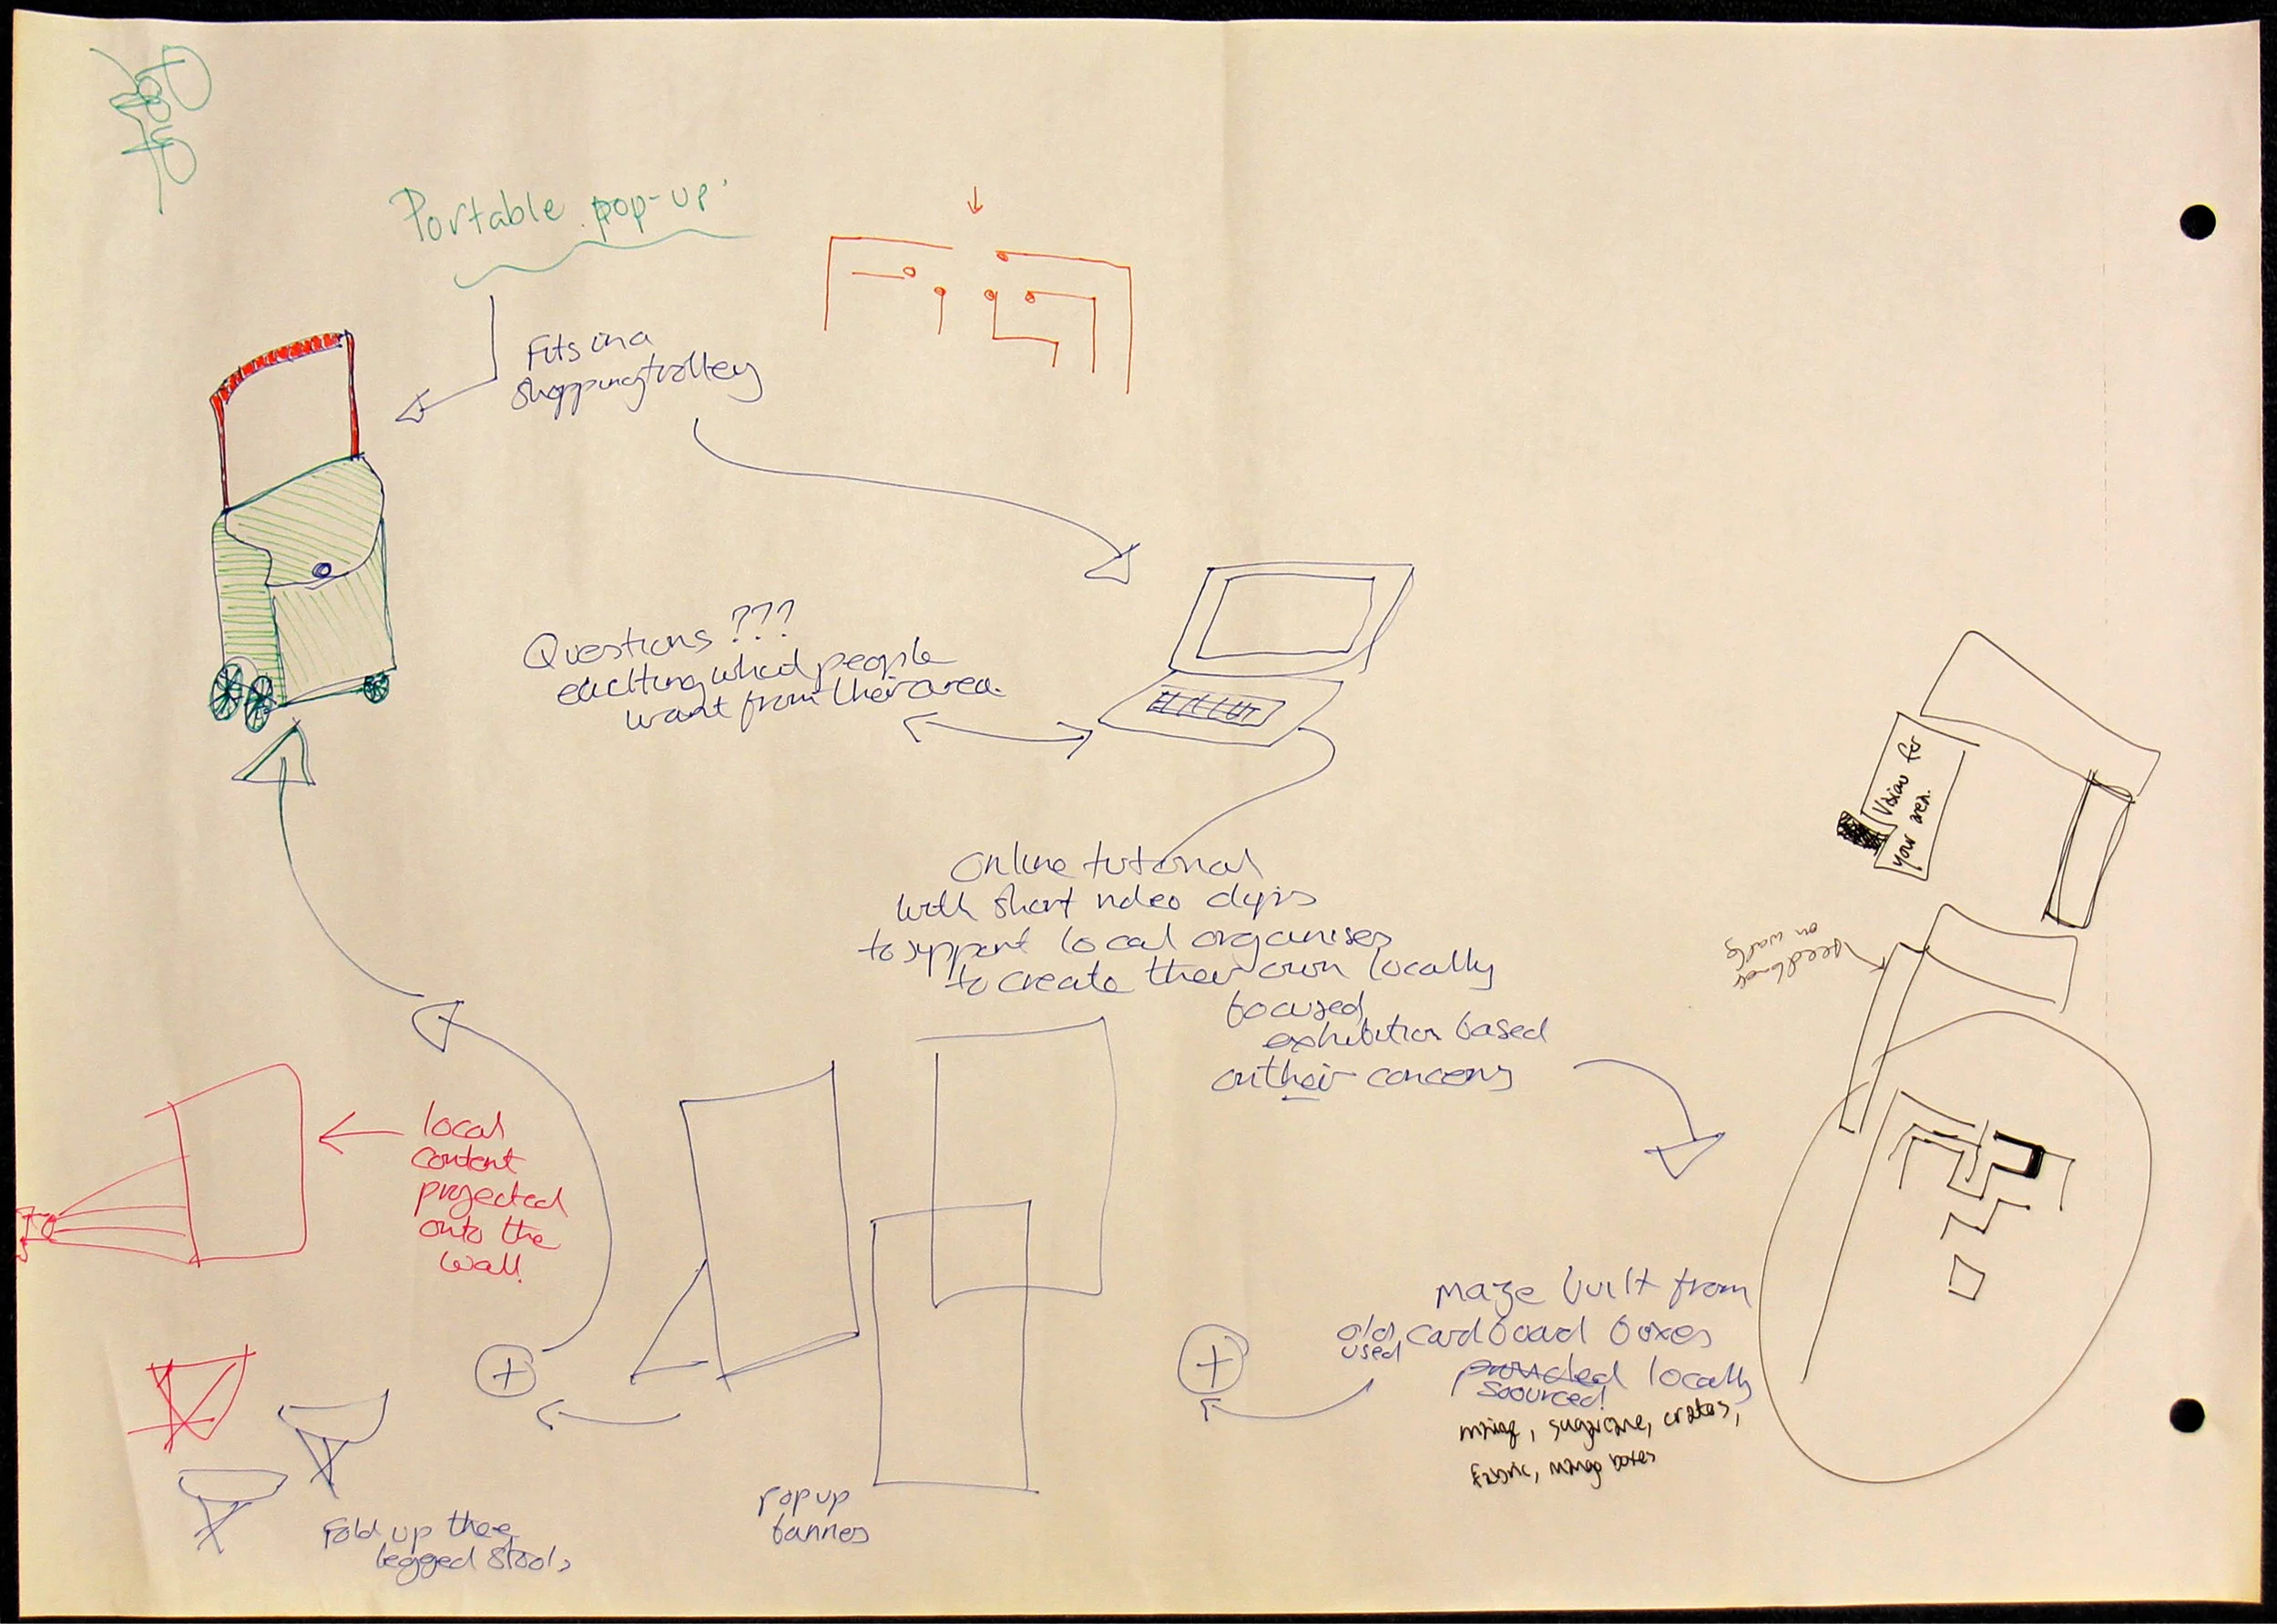 Portable pop-up
Fits in a
shopping trolley
Questions ???
eliciting what people
want from their area.
Vision for
your area.
Feedback
on walls
Online tutorial
with short video clips
to support local organisers
to create their own locally
focused
exhibition based
on their concerns
local
content
projected
onto the
wall
Maze built from
old, cardboard boxes
used
provided locally
soourced!
sugarcane, crates,
fabric, mango boxes
Pop up
banners
Fold up three
legged stools